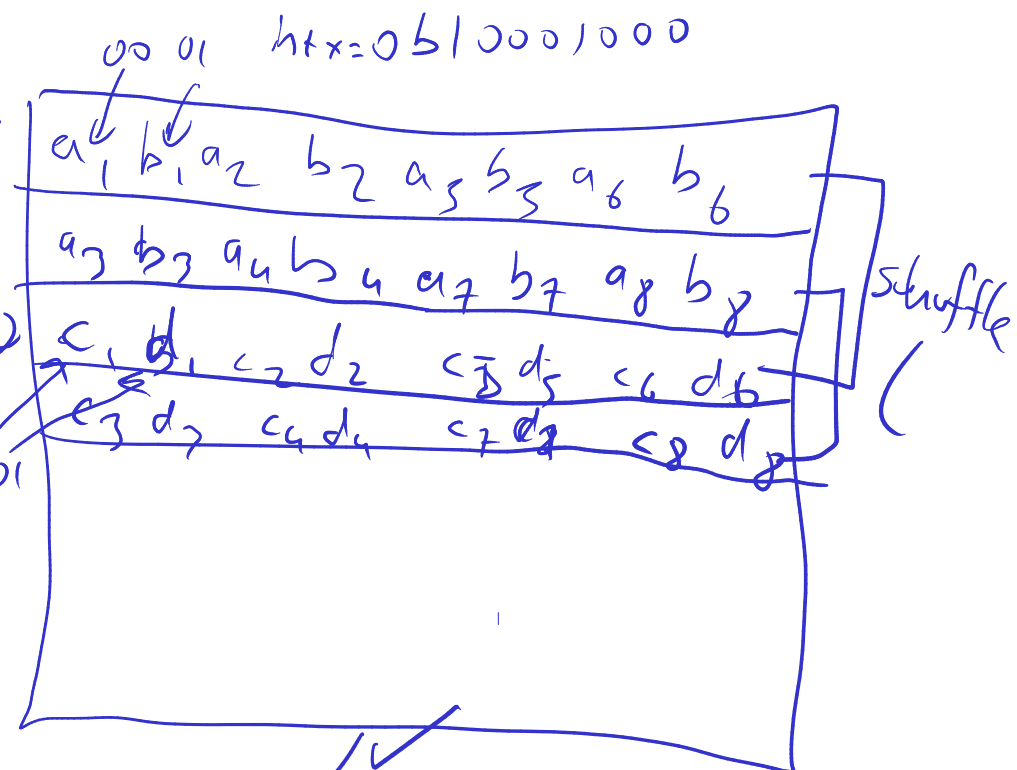 00 01 hex=0b10001000
a1 b1 a2 b2 a5 b5 a6 b6
a3 b3 a4 b4 a7 b7 a8 b8
schuffle
c1 d1 c2 d2 c5 d5 c6 d6
c3 d3 c4 d4 c7 d7 c8 d8
01